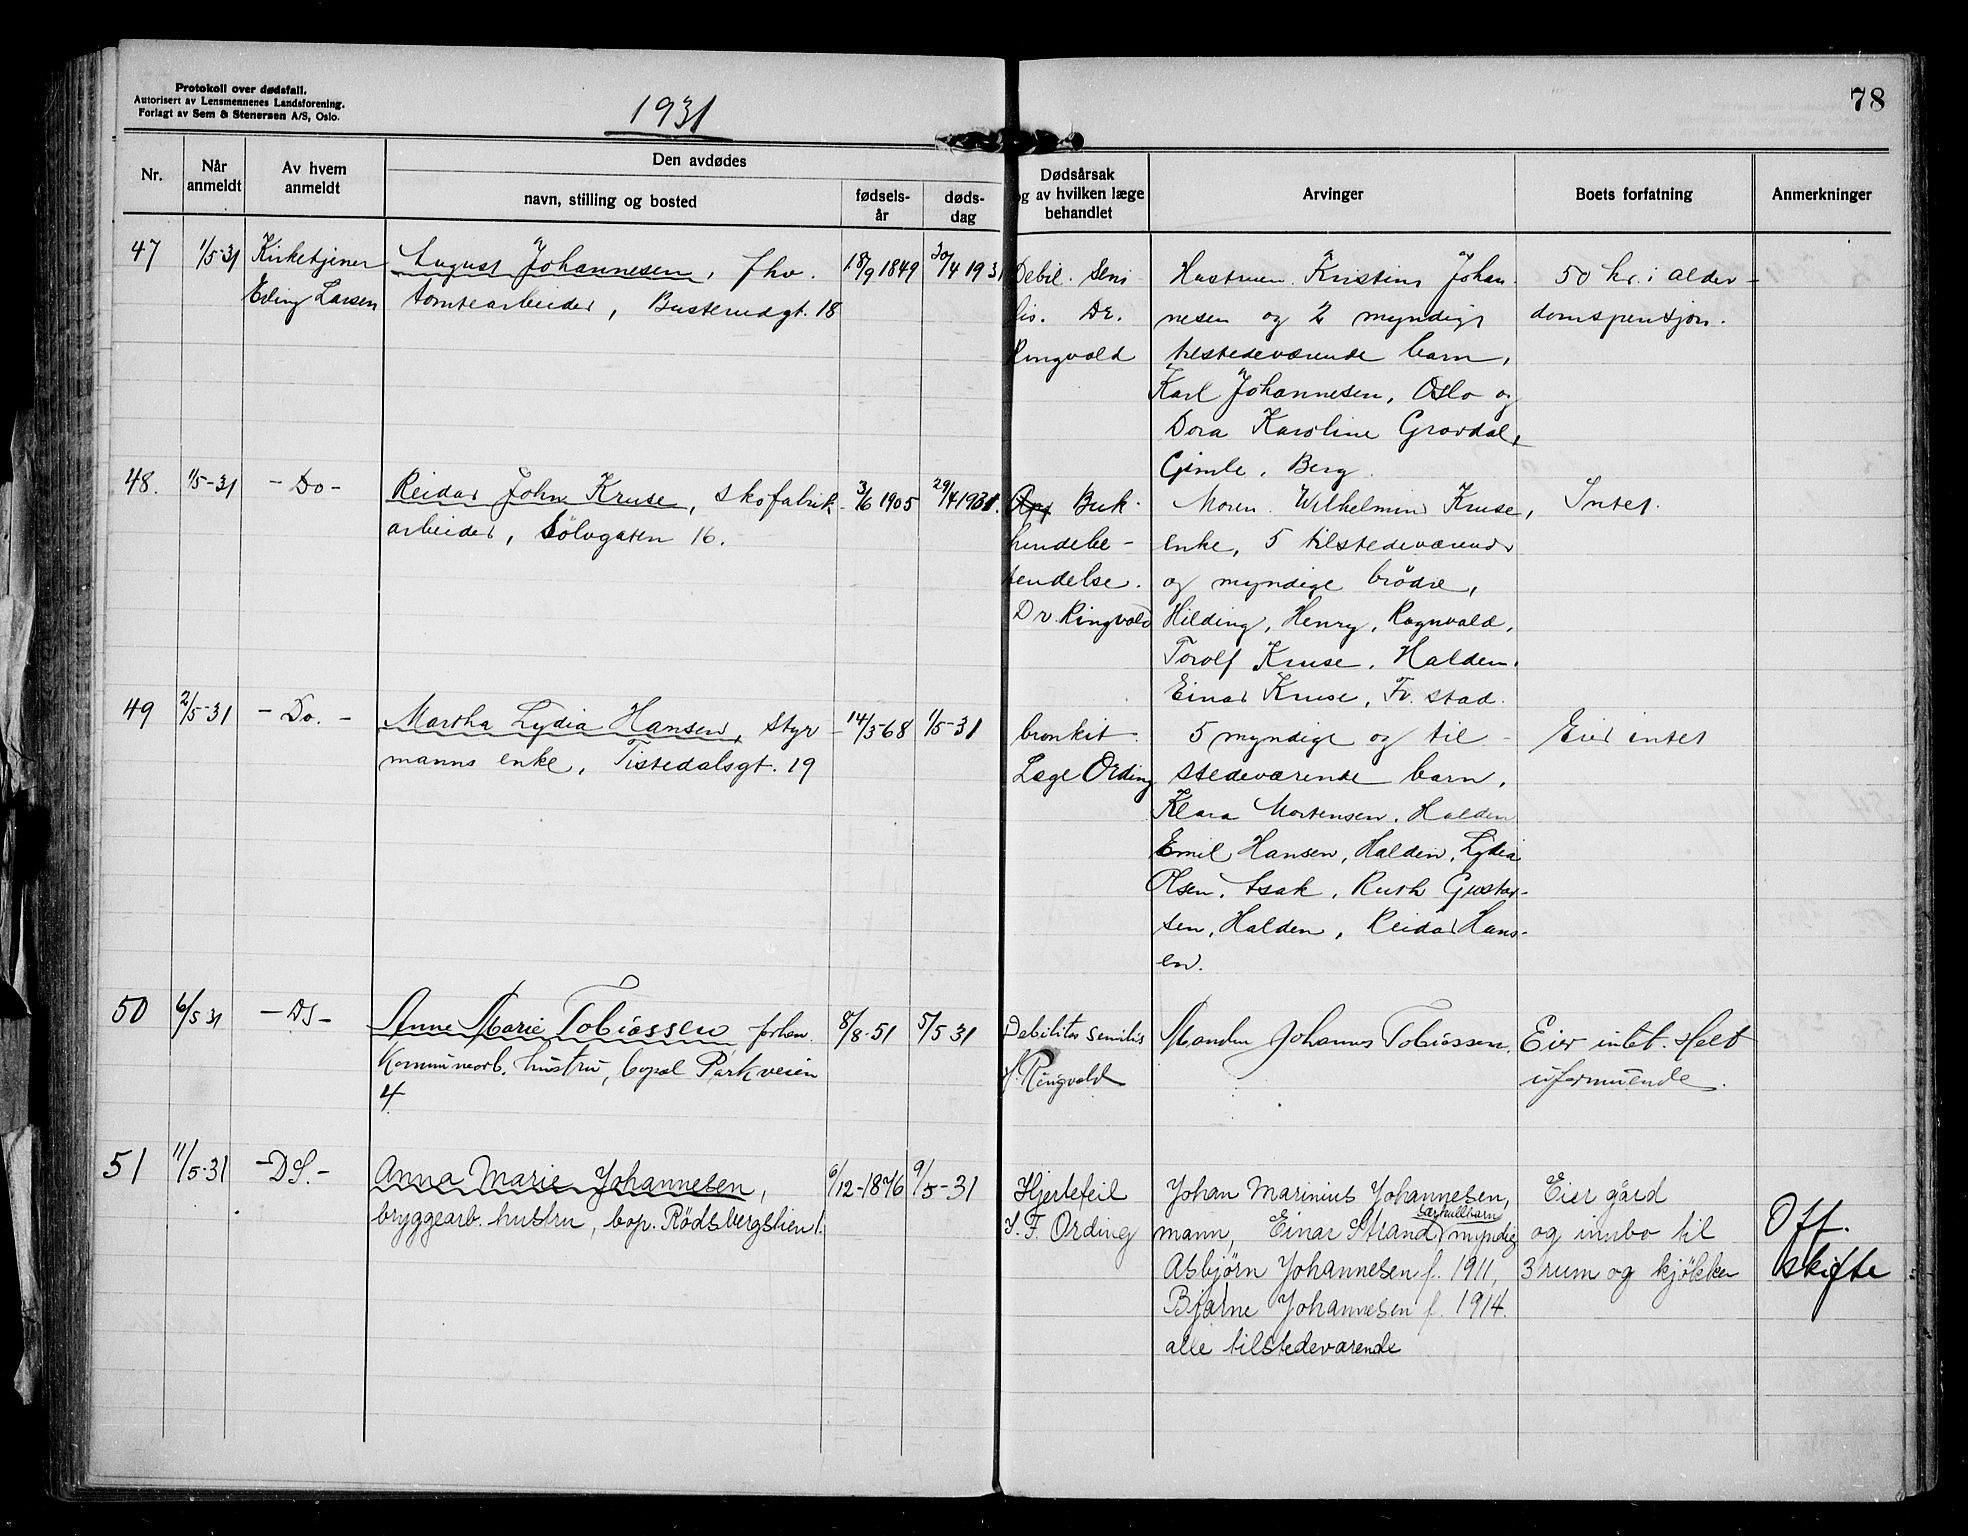 Protokoll over dødsfall.
Autorisert av Lensmennenes Landsforening.
Forlagt av Sem & Stenersen A/S, Oslo.
1931
78
Nr.
Når anmeldt
Av hvem anmeldt
Den avdødes
navn, stilling og bosted
fødselsår
dødsdag
Dødsårsak
og av hvilken læge
behandlet
Arvinger
Boets forfatning
Anmerkninger
47
1/5-31
Kirketjener
Erling Larsen
August Johannesen, fhv.
tomtearbeider, Busterudgt. 18
18/9 1849
30/4 1931
Debil. Seni
lis. Dr.
Ringvold
Hustruen Kristine Johan-
nesen og 2 myndige
tilstedeværende barn,
Karl Johannesen, Oslo og
Dora Karoline Grovdal,
Gimle, Berg.
50 kr. i alder-
domspensjon.
48.
1/5-31
- Do -
Reidar John Kruse, skofabrik-
arbeider, Sölvgaten 16.
3/6 1905
29/4 1931.
Buk-
hindebe-
tendelse.
Dr. Ringvold
Moren Wilhelmine Kruse,
enke, 5 tilstedeværende
og myndige brödre,
Hilding, Henry, Ragnvald,
Torolf Kruse, Halden.
Einar Kruse, Fr. stad.
Intet.
49
2/5-31
- Do. -
Martha Lydia Hansen, styr-
manns enke, Tistedalsgt. 19
14/3-68
1/5-31
bronkit.
Læge Ording
5 myndige og til-
stedeværende barn,
Klara Mortensen, Halden
Emil Hansen, Halden, Lydia
Olsen, Isak, Ruth Gustav-
sen, Halden, Reidar Hans-
en.
Eier intet
50
6/5 31
- DS -
Anne Marie Tobiassen forhen.
Kommunearb. hustru, bopæl Parkveien
4
8/8-51
5/5 31
Debilitas senilis
Ringvold
Manden Johannes Tobiassen.
Eier intet. Helt
uformuende.
51
11/5-31
- DS. -
Anna Marie Johannesen,
bryggearb. hustru, bop. Rödsbergslien 1.
6/12-1876
9/5-31
Hjertefeil
F. Ording
Johan Marinius Johannesen,
særkullbarn
mann, Einar Strand, myndig
Asbjørn Johannesen f. 1911,
Bjarne Johannesen f. 1914.
alle tilstedeværende
Eier gård
og innbo til
3 rum og kjøkken
Off.
skifte